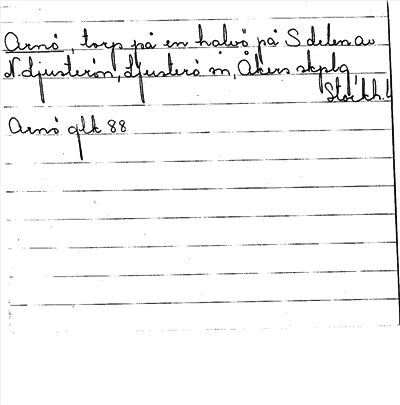 Arnö, torp på en halvö på S delen av
N. Ljusterön, Ljusterö sn, Åkers skplg,
Stockh. l
Arnö glk 88